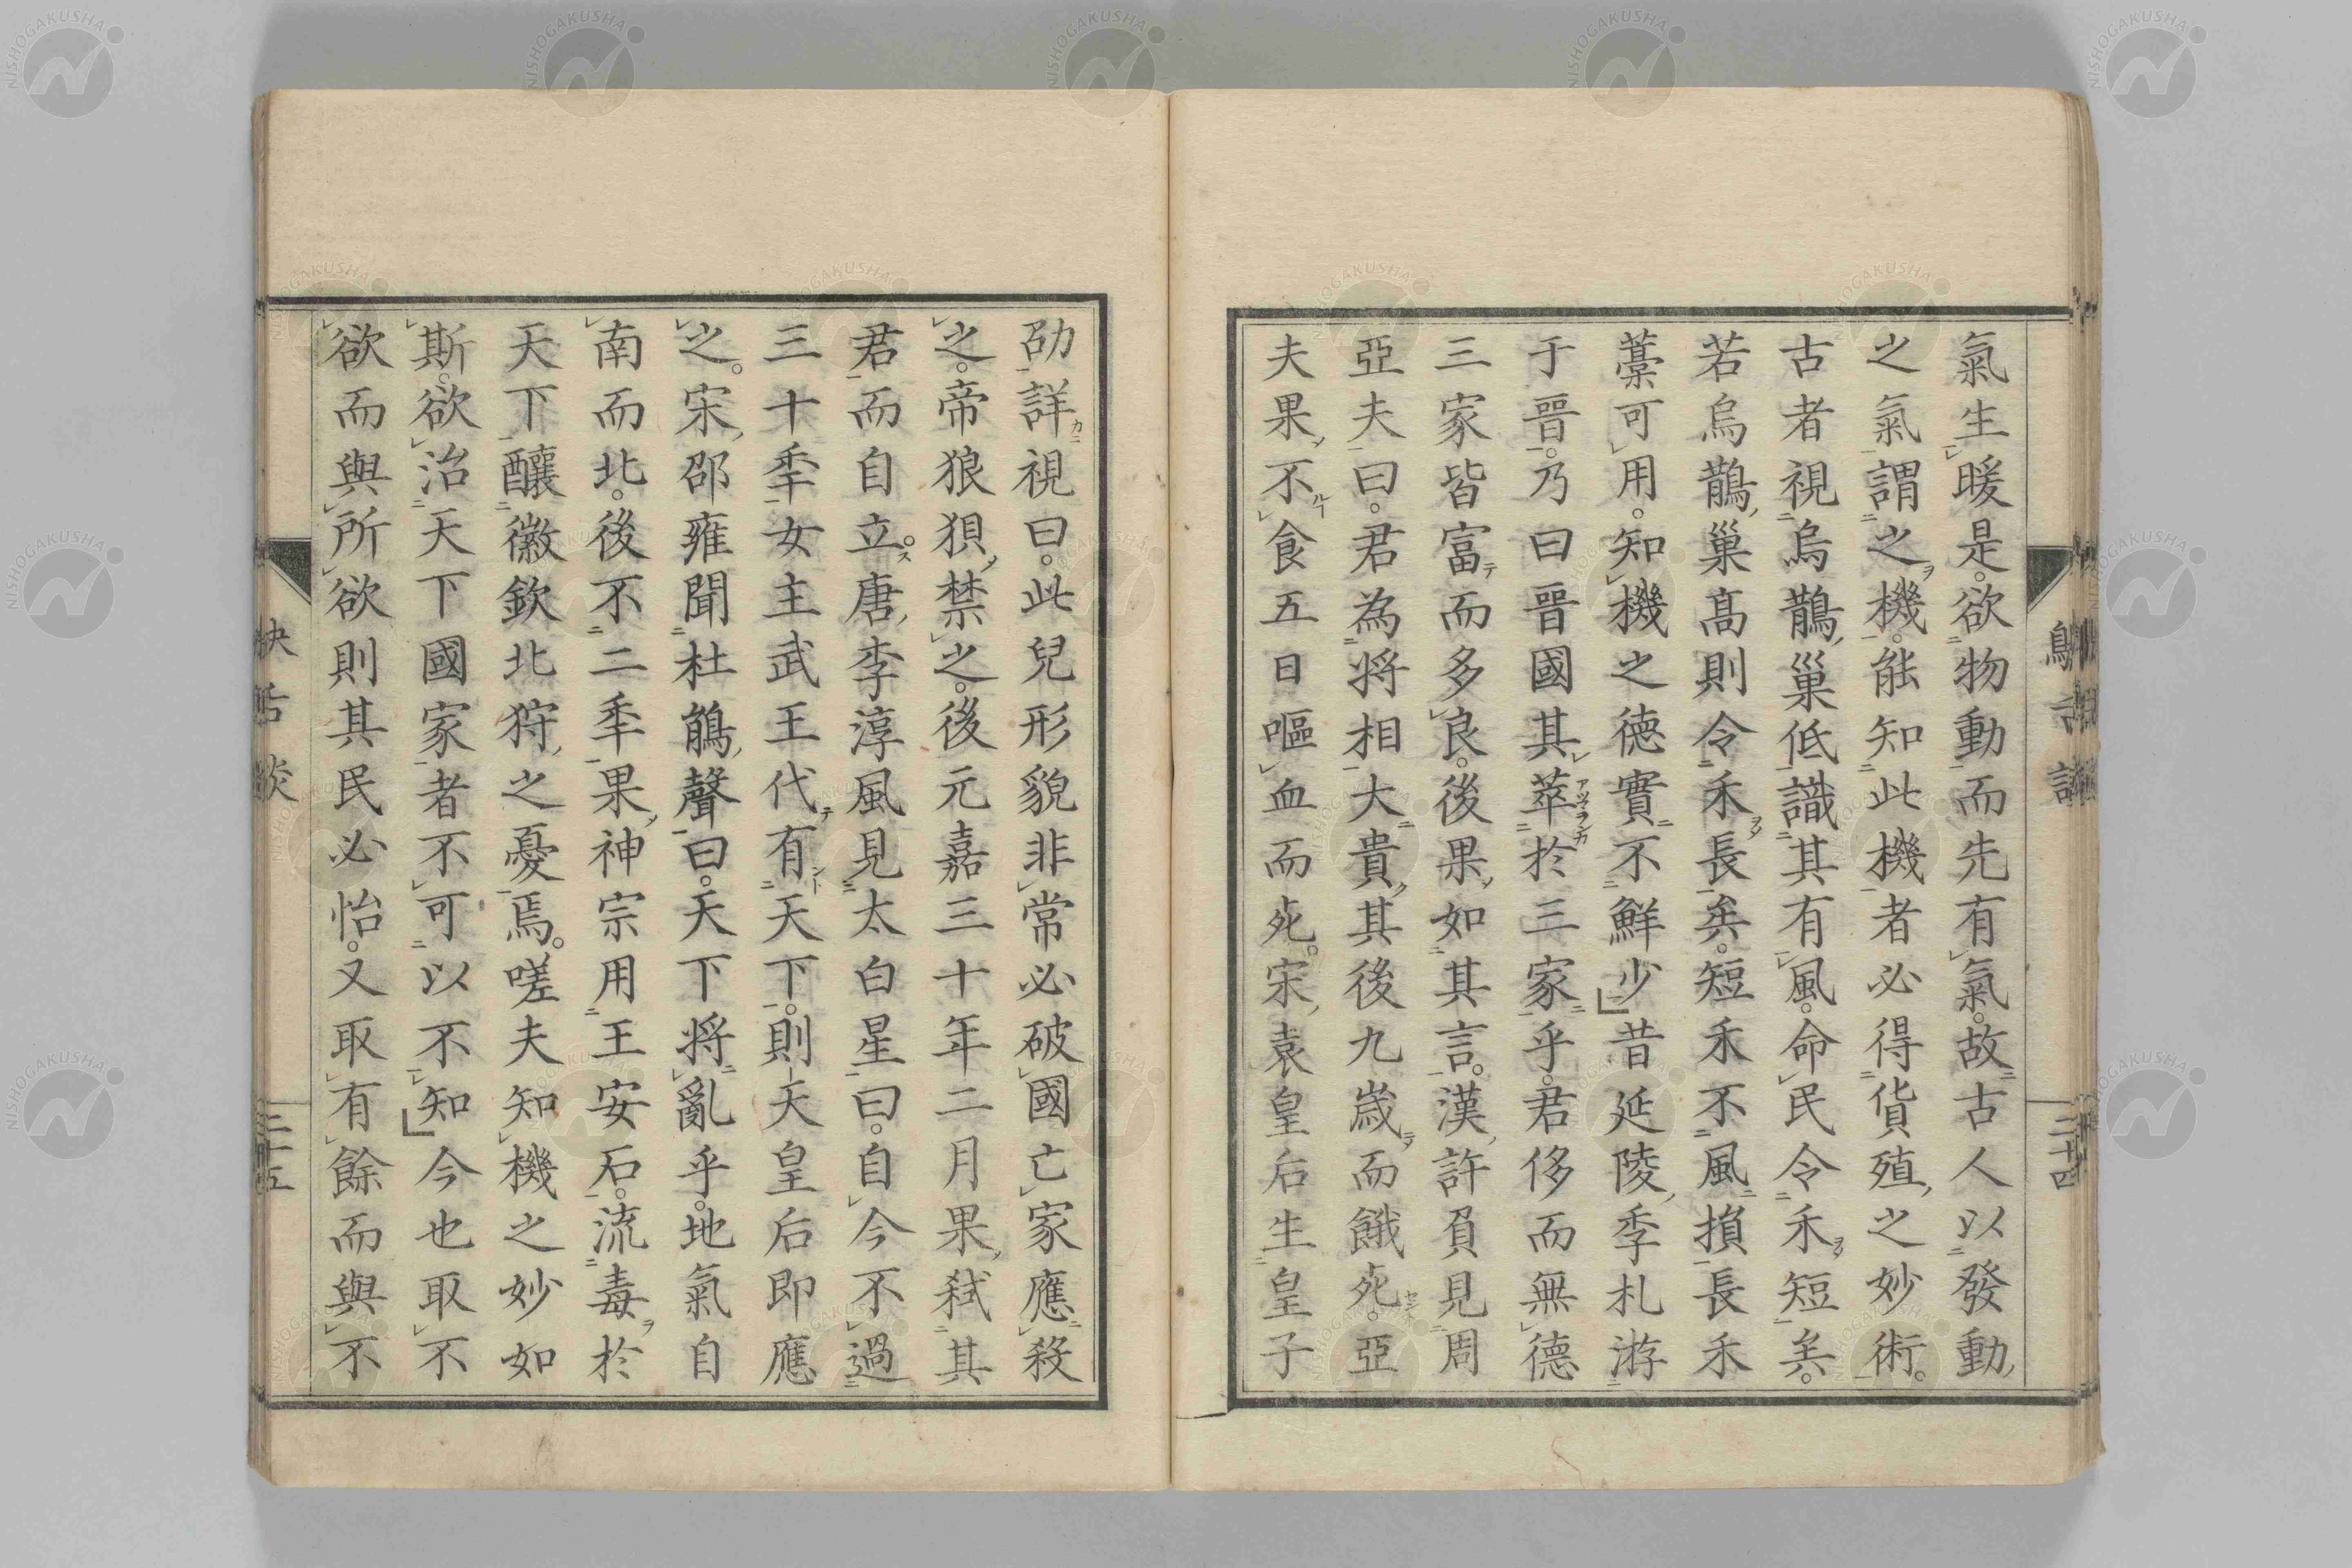 氣生暖是。欲物動而先有氣。故古人以發動
之氣謂之機。能知此機者必得貨殖之妙術。
古者視烏鵲巢低識其有風。命民令禾短矣。
若烏鵲巢高則令禾長矣。短禾不風損長禾
藁可用。知機之德實不鮮少」昔延陵季札游
于晉。乃曰晉國其萃於三家乎。君侈而無德
三家皆富而多良。後果如其言。漢許負見周
亞夫曰。君為将相大貴其後九歲而餓死。亞
夫果不食五日嘔血而死。宋袁皇后生皇子
劭詳視曰。此兒形貌非常必破國亡家應殺
之。帝狼狽禁之。後元嘉三十年二月果弒其
君而自立。唐李淳風見太白星曰。自今不過
三十秊女主武王代有天下。則天皇后即應
之。宋邵雍聞杜鵑聲曰。天下将亂乎。地氣自
南而北。後不二秊果神宗用王安石。流毒於
天下釀徽欽北狩之憂焉。嗟夫知機之妙如
斯。欲治天下國家者不可以不知」今也取不
欲而與所欲則其民必怡。又取有餘而與不
三十五
三十四
NISHOGAKUSHA